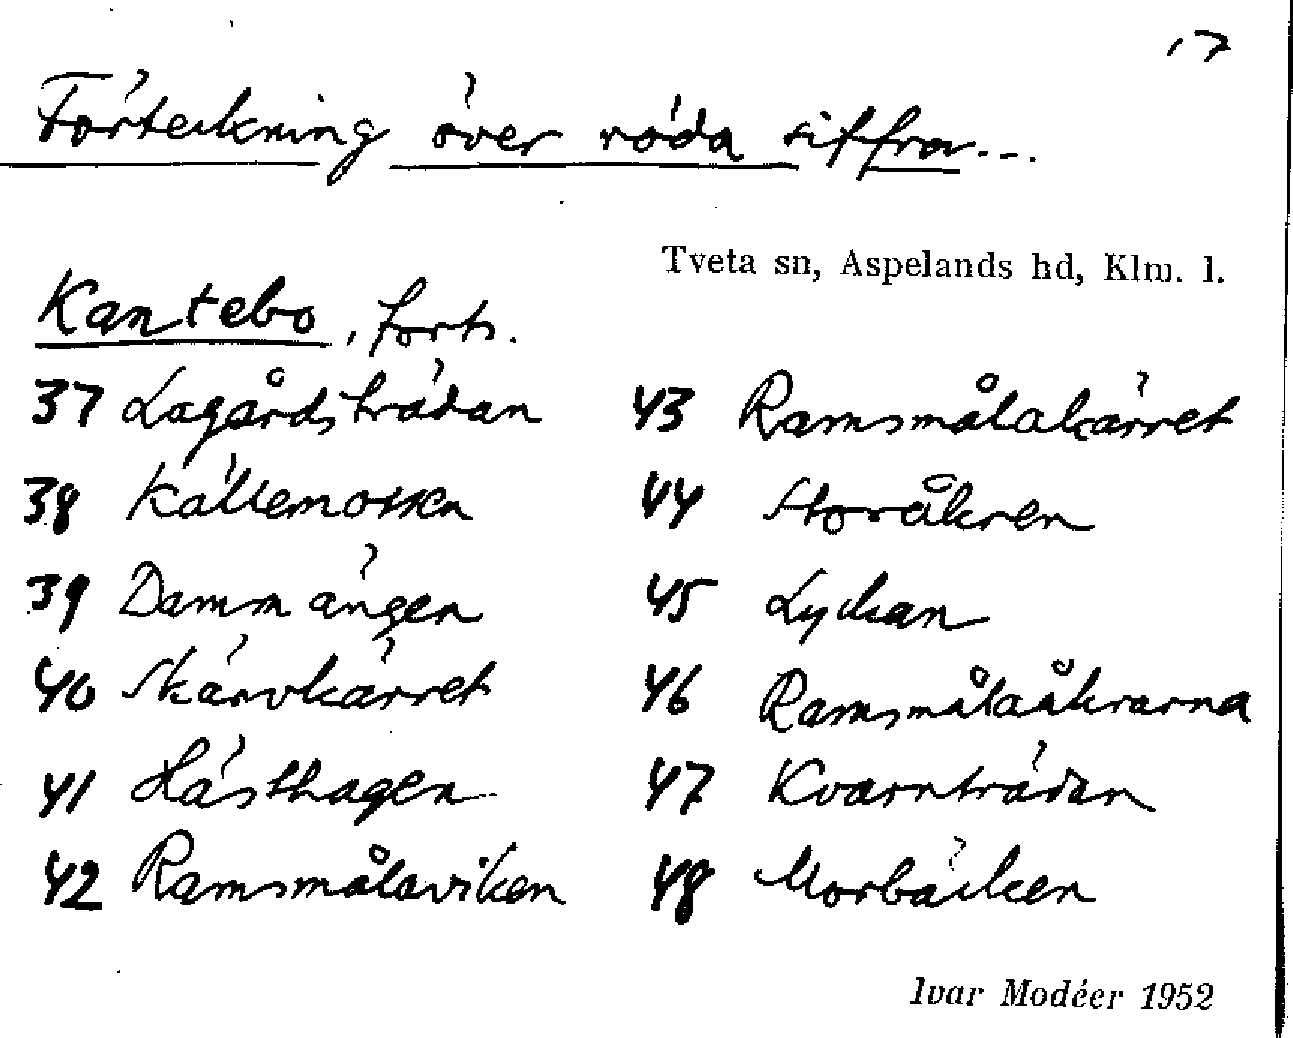 17
Förteckning över röda siffror...
Tveta sn, Aspelands hd, Klm. l.
Kantebo, forts.
37 Lagårdsträdan
38 Källemossen
39 Dammängen
40 Skärvkärret
41 Hästhagen
42 Ramsmålaviken
43 Ramsmålakärret
44 Storåkren
45 Lyckan
46 Ramsmålaåkrarna
47 Kvarnträdan
48 Morbäcken
Ivar Modéer 1952